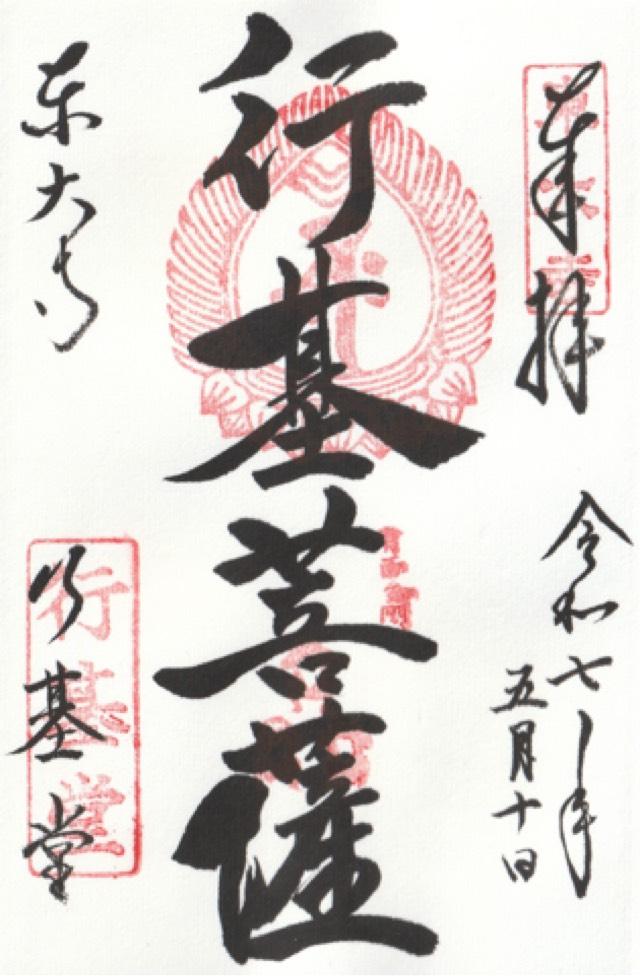 奉拝
令和七年
五月十日
行基菩薩
東大寺
行基堂
行基堂